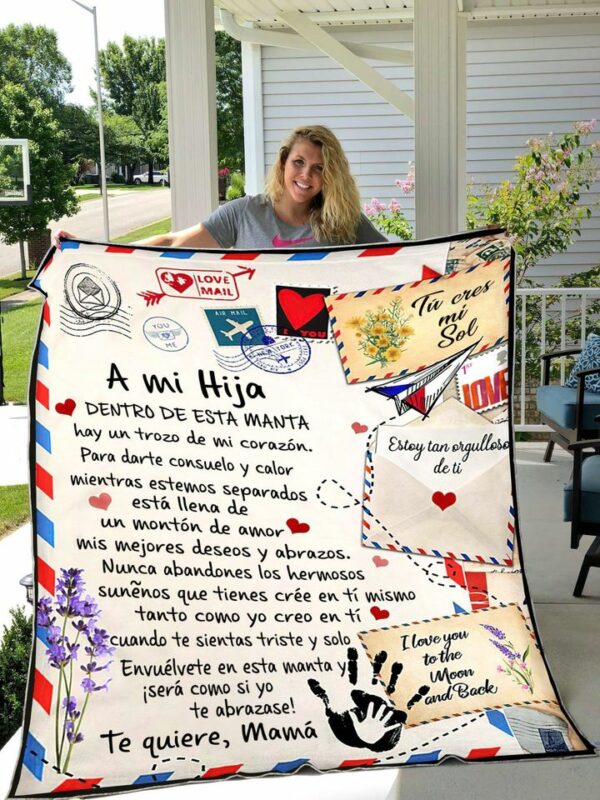 LOVE
MAIL
YOU
ME
AIR MAIL
I YOU
Tú eres
mi
Sol
1ST
LOVE
A mi Hija
DENTRO DE ESTA MANTA
hay un trozo de mi corazón.
Para darte consuelo y calor
mientras estemos separados
está llena de
un montón de amor
mis mejores deseos y abrazos.
Nunca abandones los hermosos
sunẽnos que tienes crée en tí mismo
tanto como yo creo en tí
cuando te sientas triste y solo
Envuélvete en esta manta y
¡será como si yo
te abrazase!
Te quiere, Mamá
Estoy tan orgulloso
de ti
I love you
to the
Moon
and Back